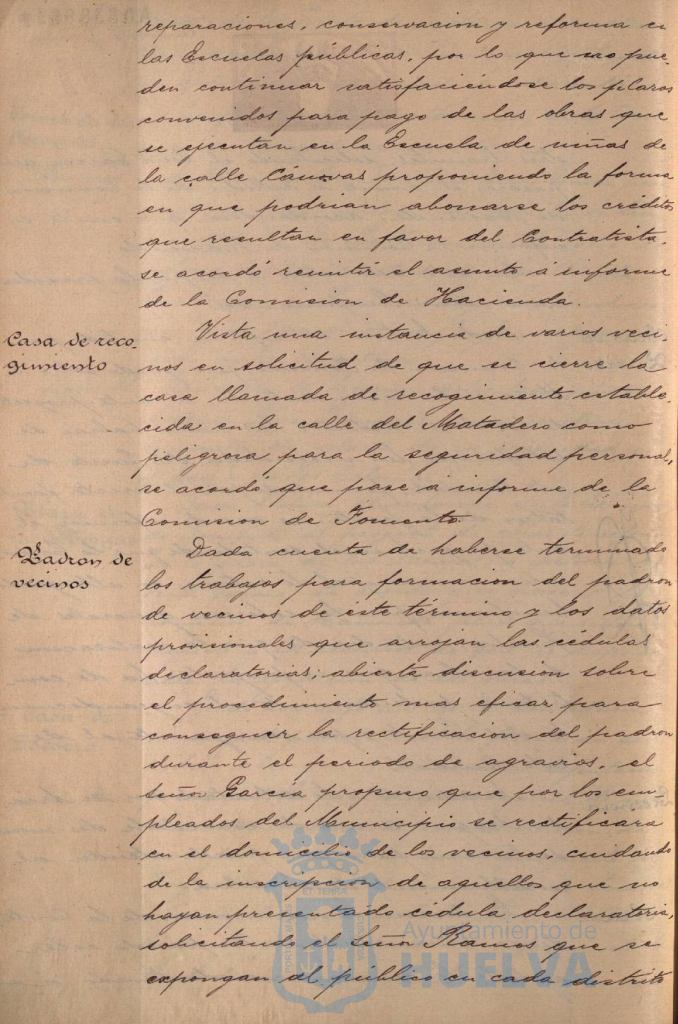 reparaciones, conservacion y reforma en
las Escuelas públicas, por lo que no pue-
den continuar satisfaciéndose los plazos
convenidos para pago de las obras que
se ejecutan en la Escuela de niñas de
la calle Cánovas proponiendo la forma
en que podrian abonarse los créditos
que resultan en favor del Contratista,
se acordó remitir el asunto á informe
de la Comision de Hacienda.
Casa de reco-
gimiento
Vista una instancia de varios veci-
nos en solicitud de que se cierre la
casa llamada de recogimiento estable-
cida en la calle del Matadero como
peligrosa para la seguridad personal,
se acordó que pase á informe de la
Comision de Fomento.
Padron de
vecinos
Dada cuenta de haberse terminado
los trabajos para formacion del padron
de vecinos de este término y los datos
provisionales que arrojan las cédulas
declaratorias; abierta discusion sobre
el procedimiento mas eficaz para
conseguir la rectificacion del padron
durante el periodo de agravios, el
Señor García propuso que por los em-
pleados del Municipio se rectificara
en el domicilio de los vecinos, cuidando
de la inscripcion de aquellos que no
hayan presentado cédula declaratoria,
solicitando el Señor Ramos que se
expongan al público en cada distrito
Ayuntamiento de
HUELVA